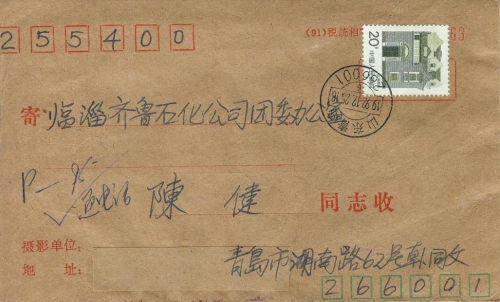 255400
(91)税统相
63
20分
中国人民邮政
寄 临淄齐鲁石化公司团委办公
陳健
同志收
摄影单位:
地 址: 青岛市湖南路62号韩同文
266001